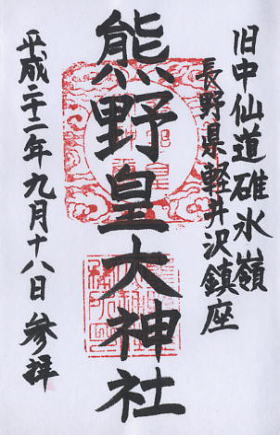 旧中仙道碓氷嶺
長野県軽井沢鎮座
熊野皇大神社
平成二十二年九月十八日 参拝